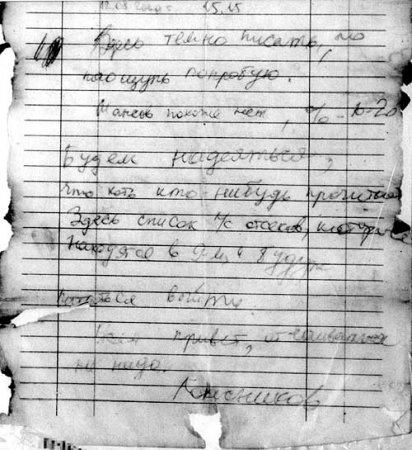 12.08.2000 15.15
Здесь темно писать, но
наощупь попробую.
Шансов похоже нет, % - 10-20
Будем надеяться,
что хоть кто-нибудь прочитает
Здесь список л/с отсеков, которые
находятся в 9-м и будут
пытаться выйти.
Всем привет, отчаиваться
не надо.
Колесников